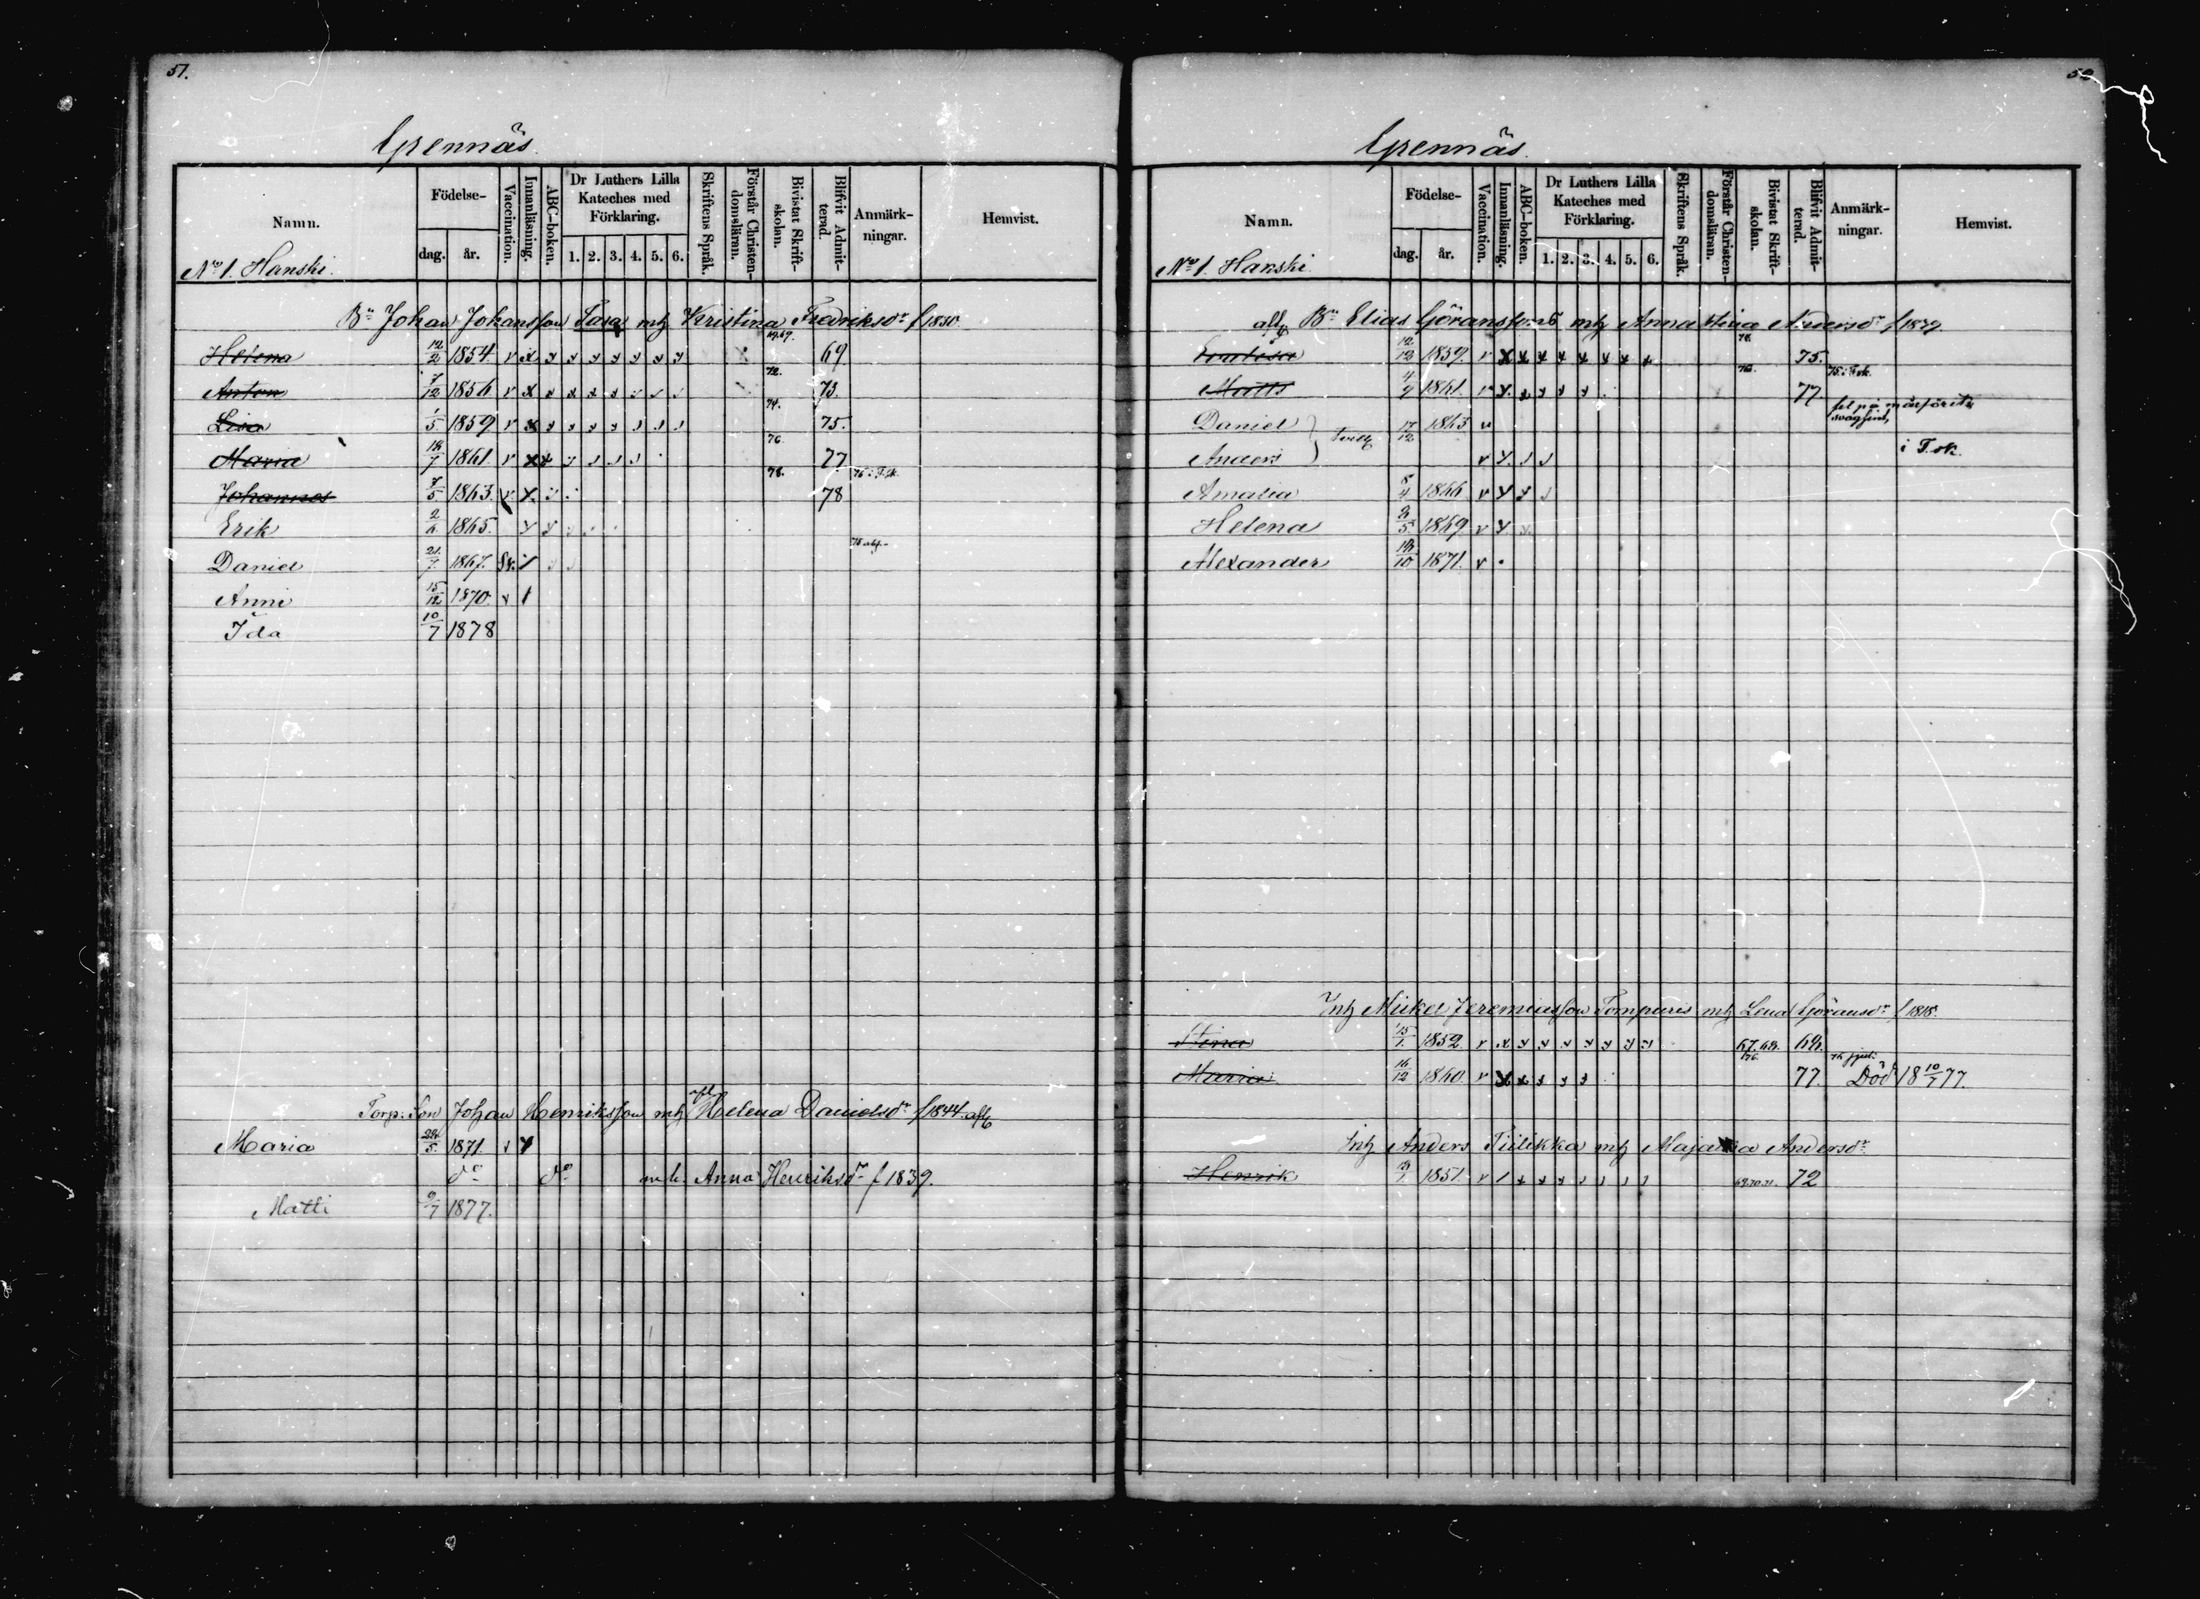 51.
Grennäs.
Namn.
Födelse-
dag. år.
Vaccination.
Innanläsning.
ABC-boken.
Dr Luthers Lilla Kateches med Förklaring.
1. 2. 3. 4. 5. 6.
Skriftens Språk.
Förstår Christen-domsläran.
Bivistat Skrift-skolan.
Blifvit Admit-terad.
Anmärk-ningar.
Hemvist.
No 1. Hanski.
Bn Johan Johansson Tasa mh Kristina Fredriksdr f 1830.
Helena 12/2 1854. v x 69
Anton 7/12 1856 v x 72. 73.
Lisa 1/5 1859 v x 74. 75.
Maria 18/7 1861 v x 76. 77
Johannes 7/5 1863. v x 78. 78
Erik 1865.
Daniel 21/7 1867.
Anni 15/12 1870. v
Ida 10/7 1878
Torp. Son Johan Henriksson mh Helena Danielsdr f 1844. afl
Maria 5. 1871. v
do do m.h. Anna Henriksdr f 1839.
Matti 9/7 1877.
52
Grennäs.
Namn.
Födelse-
dag. år.
Vaccination.
Innanläsning.
ABC-boken.
Dr Luthers Lilla Kateches med Förklaring.
1. 2. 3. 4. 5. 6.
Skriftens Språk.
Förstår Christen-domsläran.
Bivistat Skrift-skolan.
Blifvit Admit-terad.
Anmärk-ningar.
Hemvist.
No 1. Hanski
afl Bn Elias Göranssons mh Anna Stina Andersdr f 1829
12/12 1859. v x 75.
Matts 4/9 1861. v x 77.
Daniel 17/12 1863 v
Anders v x i T.sk.
Amalia 8/4 1866 v x
Helena 1869 v x
Alexander 10 1871. v
Inh Mickel Jeremiasson Tompuris mh Lena Göransdr f 1818.
Stina 15/1. 1852. v x 67. 68. 68.
Maria 16/12 1860. v x 76. 77. Död 18 10/7 77.
Inh Anders Tiilikka mh Maja Andersdr
Henrik 1851. v 69.70.71. 72